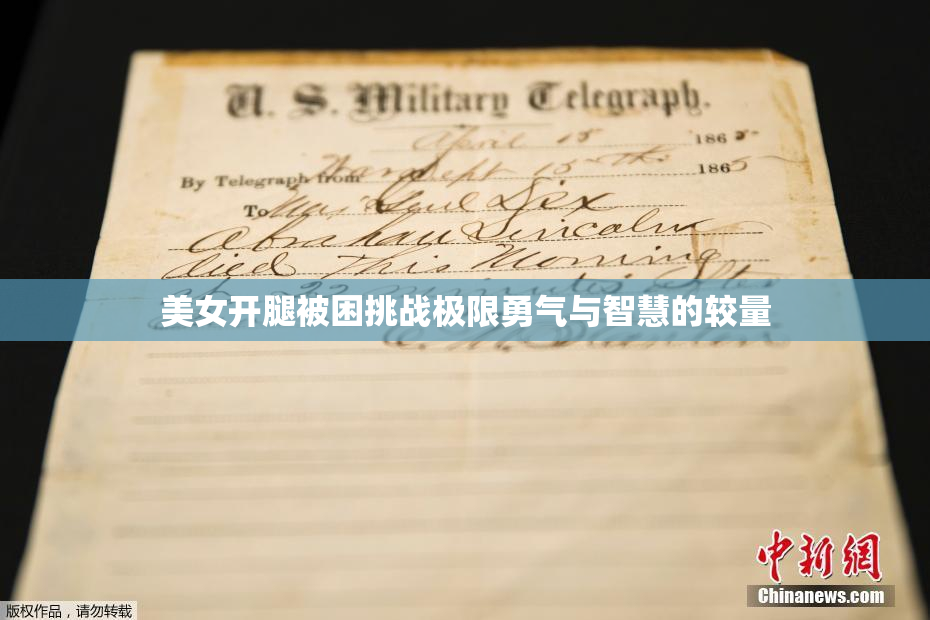 U. S. Military Telegraph.
April 15 1865
By Telegraph from War Dept 15th 1865
To Maj Genl Dix
Abraham Lincoln
died This Morning
at 22 minutes after
美女开腿被困挑战极限勇气与智慧的较量
E. M. Stanton
中新网
Chinanews.com
版权作品，请勿转载